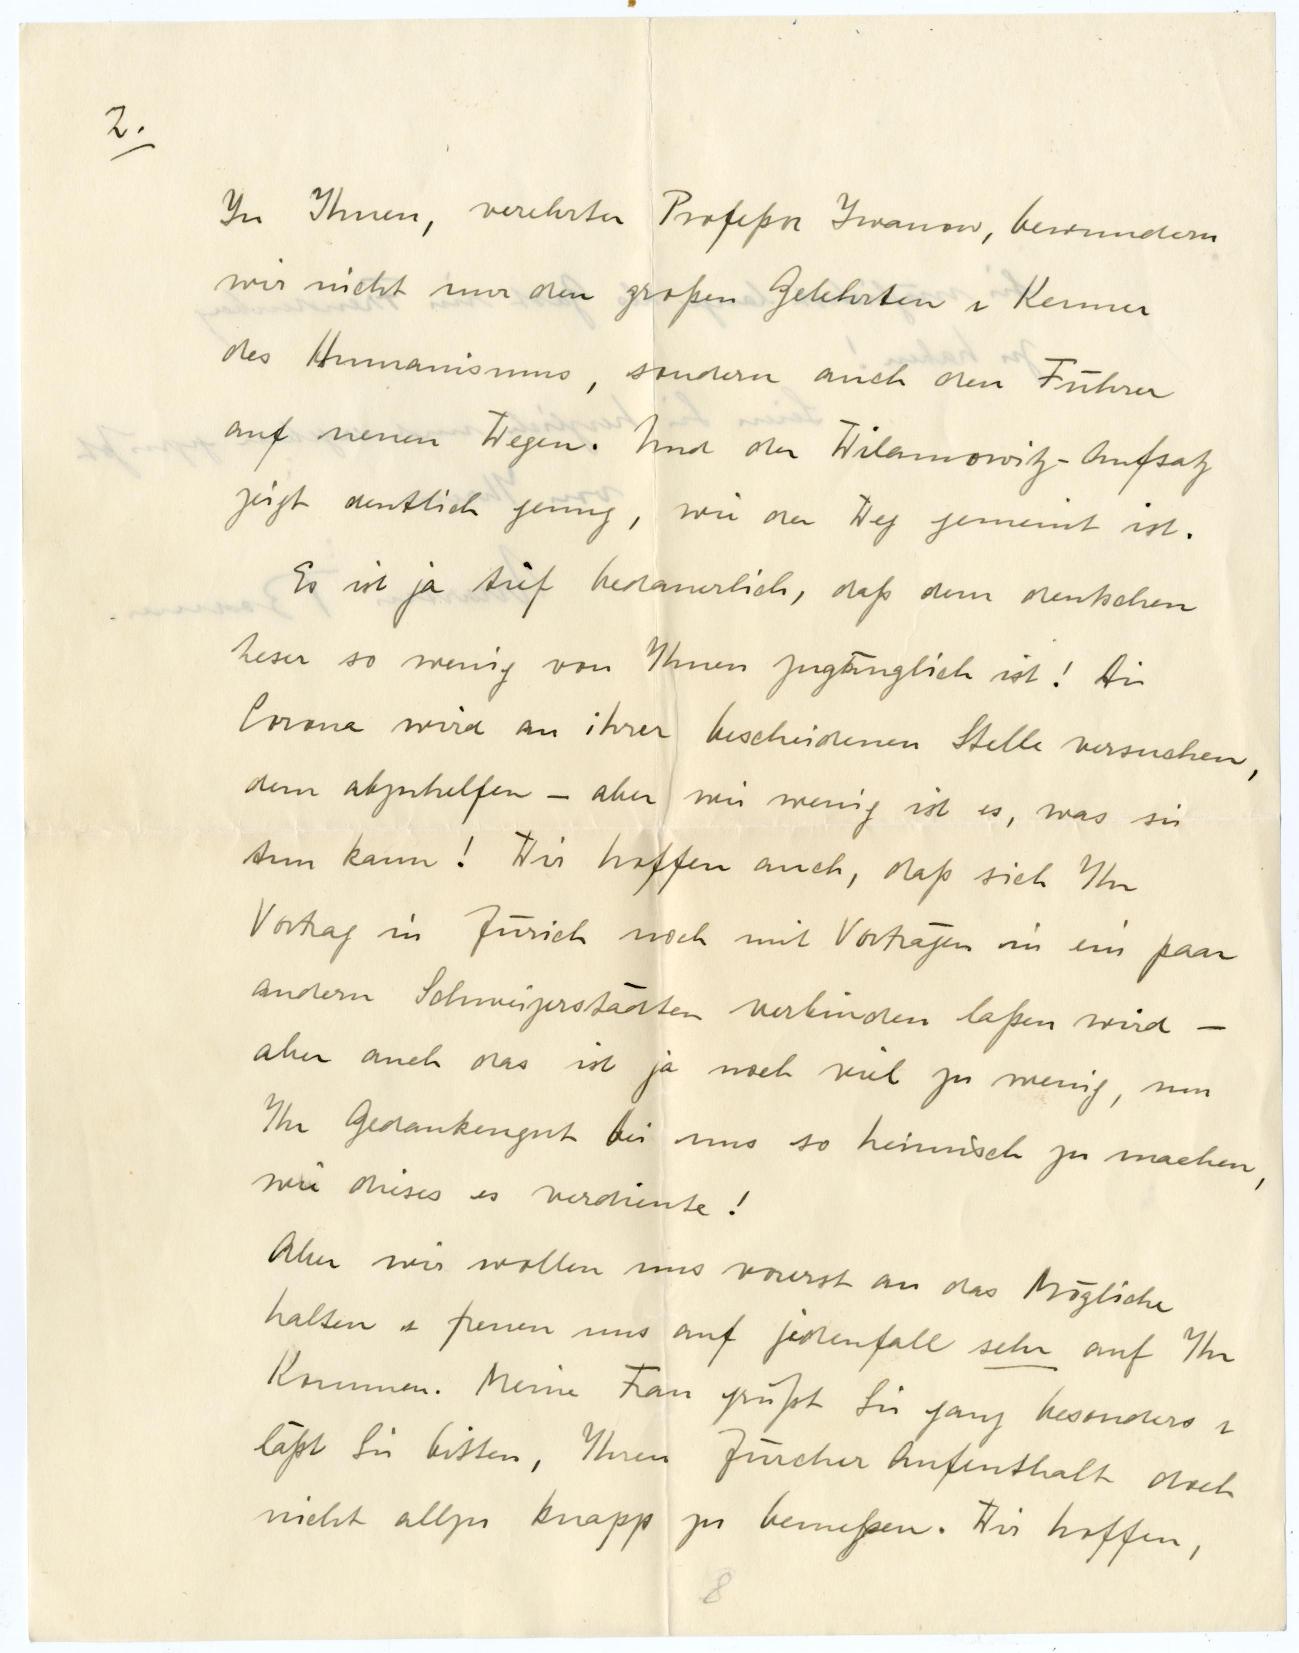 2.
In Ihnen, verehrter Profeßor Iwanow, bewundern
wir nicht nur den großen Gelehrten & Kenner
des Humanismus, sondern auch den Führer
auf neuen Wegen. Und der Wilamowitz-Aufsatz
zeigt deutlich genug, wie der Weg gemeint ist.
Es ist ja tief bedauerlich, daß dem deutschen
Leser so wenig von Ihnen zugänglich ist! Die
Corona wird an ihrer bescheidenen Stelle versuchen,
dem abzuhelfen – aber wie wenig ist es, was sie
tun kann! Wir hoffen auch, daß sich Ihr
Vortrag in Zürich noch mit Vorträgen in ein paar
andern Schweizerstädten verbinden laßen wird –
aber auch das ist ja noch viel zu wenig, um
Ihr Gedankengut bei uns so heimisch zu machen,
wie dieses es verdiente!
Aber wir wollen uns vorerst an das Mögliche
halten & freuen uns auf jedenfall sehr auf Ihr
Kommen. Meine Frau grüßt Sie ganz besonders &
läßt Sie bitten, Ihren Zürcher Aufenthalt doch
nicht allzu knapp zu bemeßen. Wir hoffen,
8